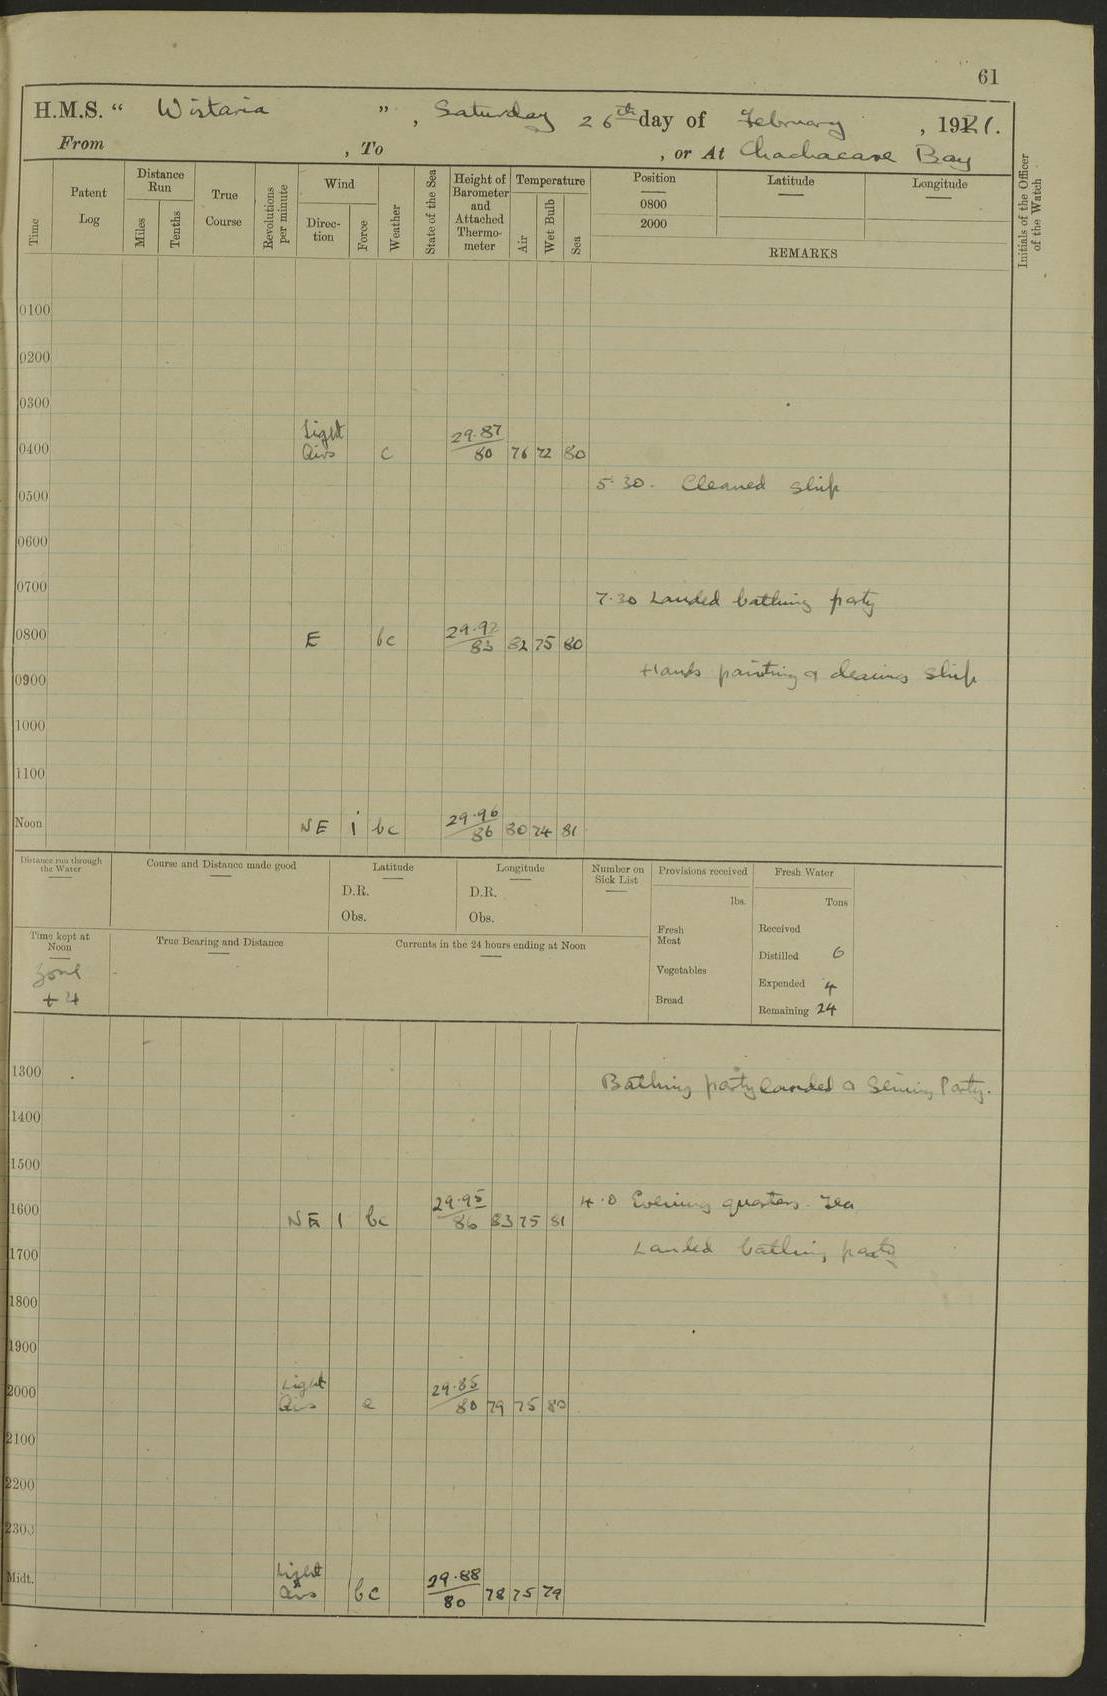 61
H.M.S. “ Wistaria ” , Saturday 26th day of February , 1921.
From , To , or At Chachacare Bay
Initials of the Officer of the Watch
Time
Patent Log
Distance Run
Miles
Tenths
True Course
Revolutions per minute
Wind
Direc- tion
Force
Weather
State of the Sea
Height of Barometer and Attached Thermo- meter
Temperature
Air
Wet Bulb
Sea
Position
0800
2000
Latitude
Longitude
REMARKS
0100
0200
0300
0400 Light Airs c 29.87 80 76 72 80
5.30. Cleaned ship
0500
0600
0700
7.30 Landed bathing party
0800 E bc 29.92 83 82 75 80
Hands painting & cleaning ship
0900
1000
1100
Noon NE 1 bc 29.96 86 80 74 81
Distance run through the Water
Course and Distance made good
Latitude
D.R.
Obs.
Longitude
D.R.
Obs.
Number on Sick List
Provisions received
lbs.
Fresh Meat
Vegetables
Bread
Fresh Water
Tons
Received
Distilled 6
Expended 4
Remaining 24
Time kept at Noon
Zone
+ 4
True Bearing and Distance
Currents in the 24 hours ending at Noon
1300
Bathing party landed & Seining Party.
1400
1500
4.0 Evening quarters. Tea
1600 NE 1 bc 29.95 86 83 75 81
Landed bathing party
1700
1800
1900
2000 Light Airs c 29.85 80 79 75 80
2100
2200
2300
Midt. Light Airs bc 29.88 80 78 75 79